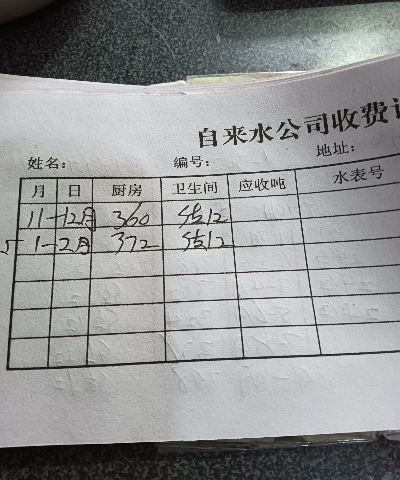 自来水公司收费
姓名： 编号： 地址：
月 日 厨房 卫生间 应收吨 水表号
11-12月 360 结12
1-2月 372 结12